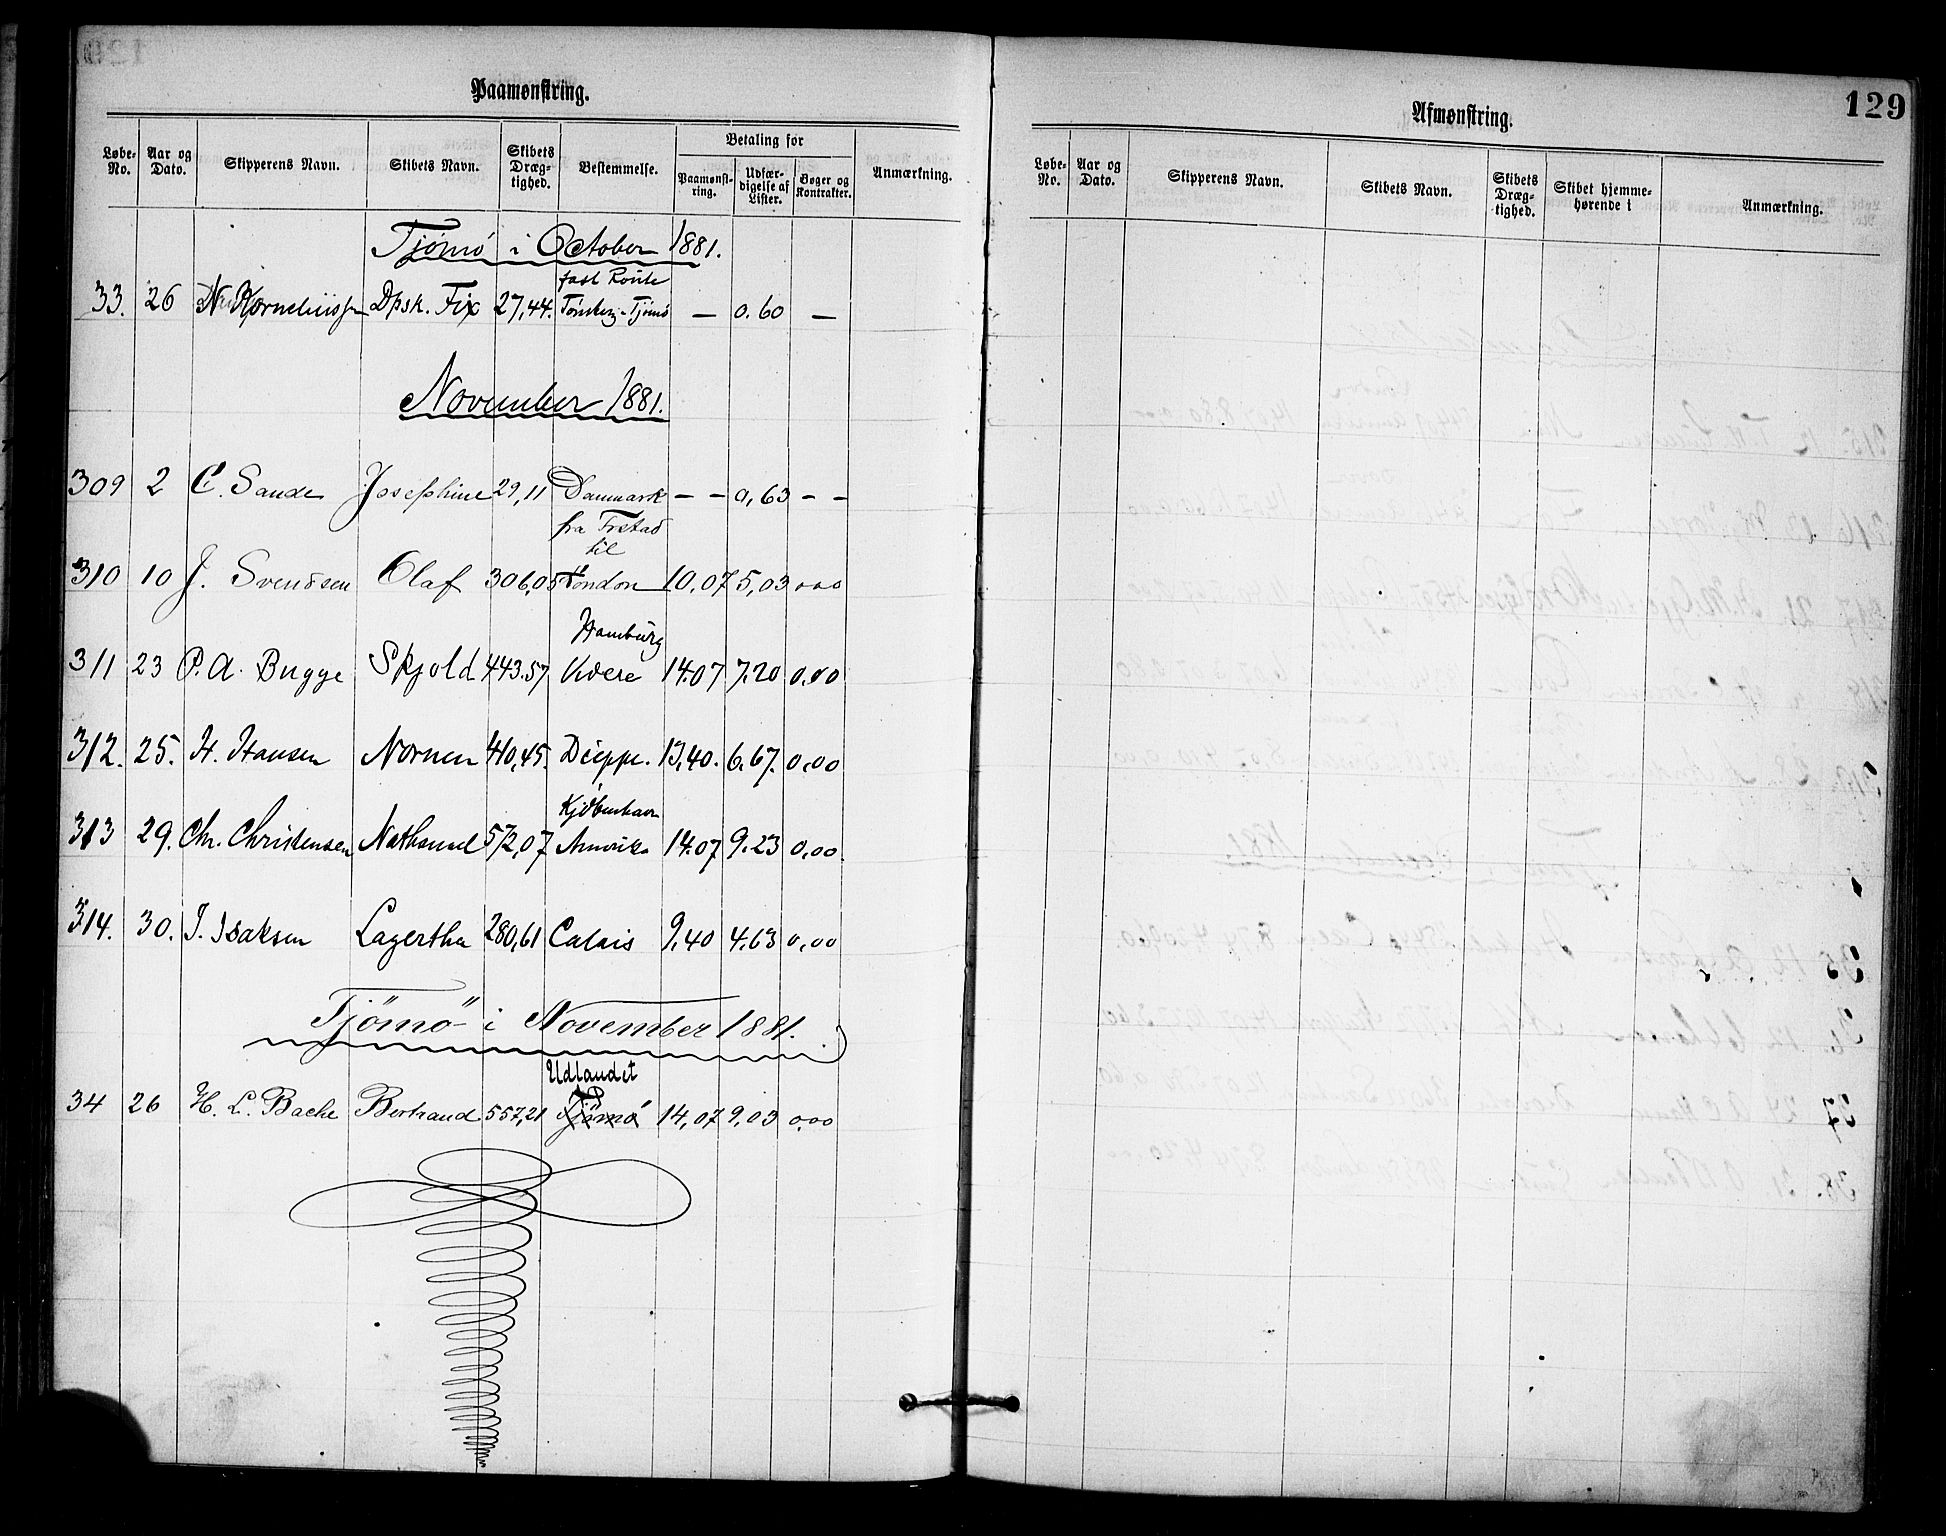 Paamønstring.
Løbe-No. Aar og Dato. Skipperens Navn. Skibets Navn. Skibets Dræg-tighed. Bestemmelse. Betaling for Paamønst-ring. Udfær-digelse af Lister. Bøger og Kontrakter. Anmærkning.
Tjømø i October 1881.
fast Route
33. 26 Korneliussen Dpsk. Fix 27,44. Tønsberg-Tjømø — 0.60 —
November 1881.
309 2 C. Sande Josephine 29,11 Danmark - - 0,63 - -
fra Frstad
til
310 10 J. Svendsen Olaf 306,05 London 10.07 5,03 000
Hamburg
311 23 P. A. Bugge Skjold 443.57 14.07 7.20 0.00
312. 25. H. Hansen Nornen 410,45. Dieppe. 13,40. 6.67. 0,00
Kjöbenhavn
313 29. Chr. Christensen Nathanael 572,07 Amerika 14.07 9.23 0,00
314. 30. J. Isaksen Lagertha 280,61 Calais 9,40 4.63 0,00
Tjömö i November 1881.
Udlandet
34 26 H. L. Bache Bertrand 557,21 Tjömö 14,07 9,03 0,00
Afmønstring.
129
Løbe-No. Aar og Dato. Skipperens Navn. Skibets Navn. Skibets Dræg-tighed. Skibet hjemme-hørende i Anmærkning.